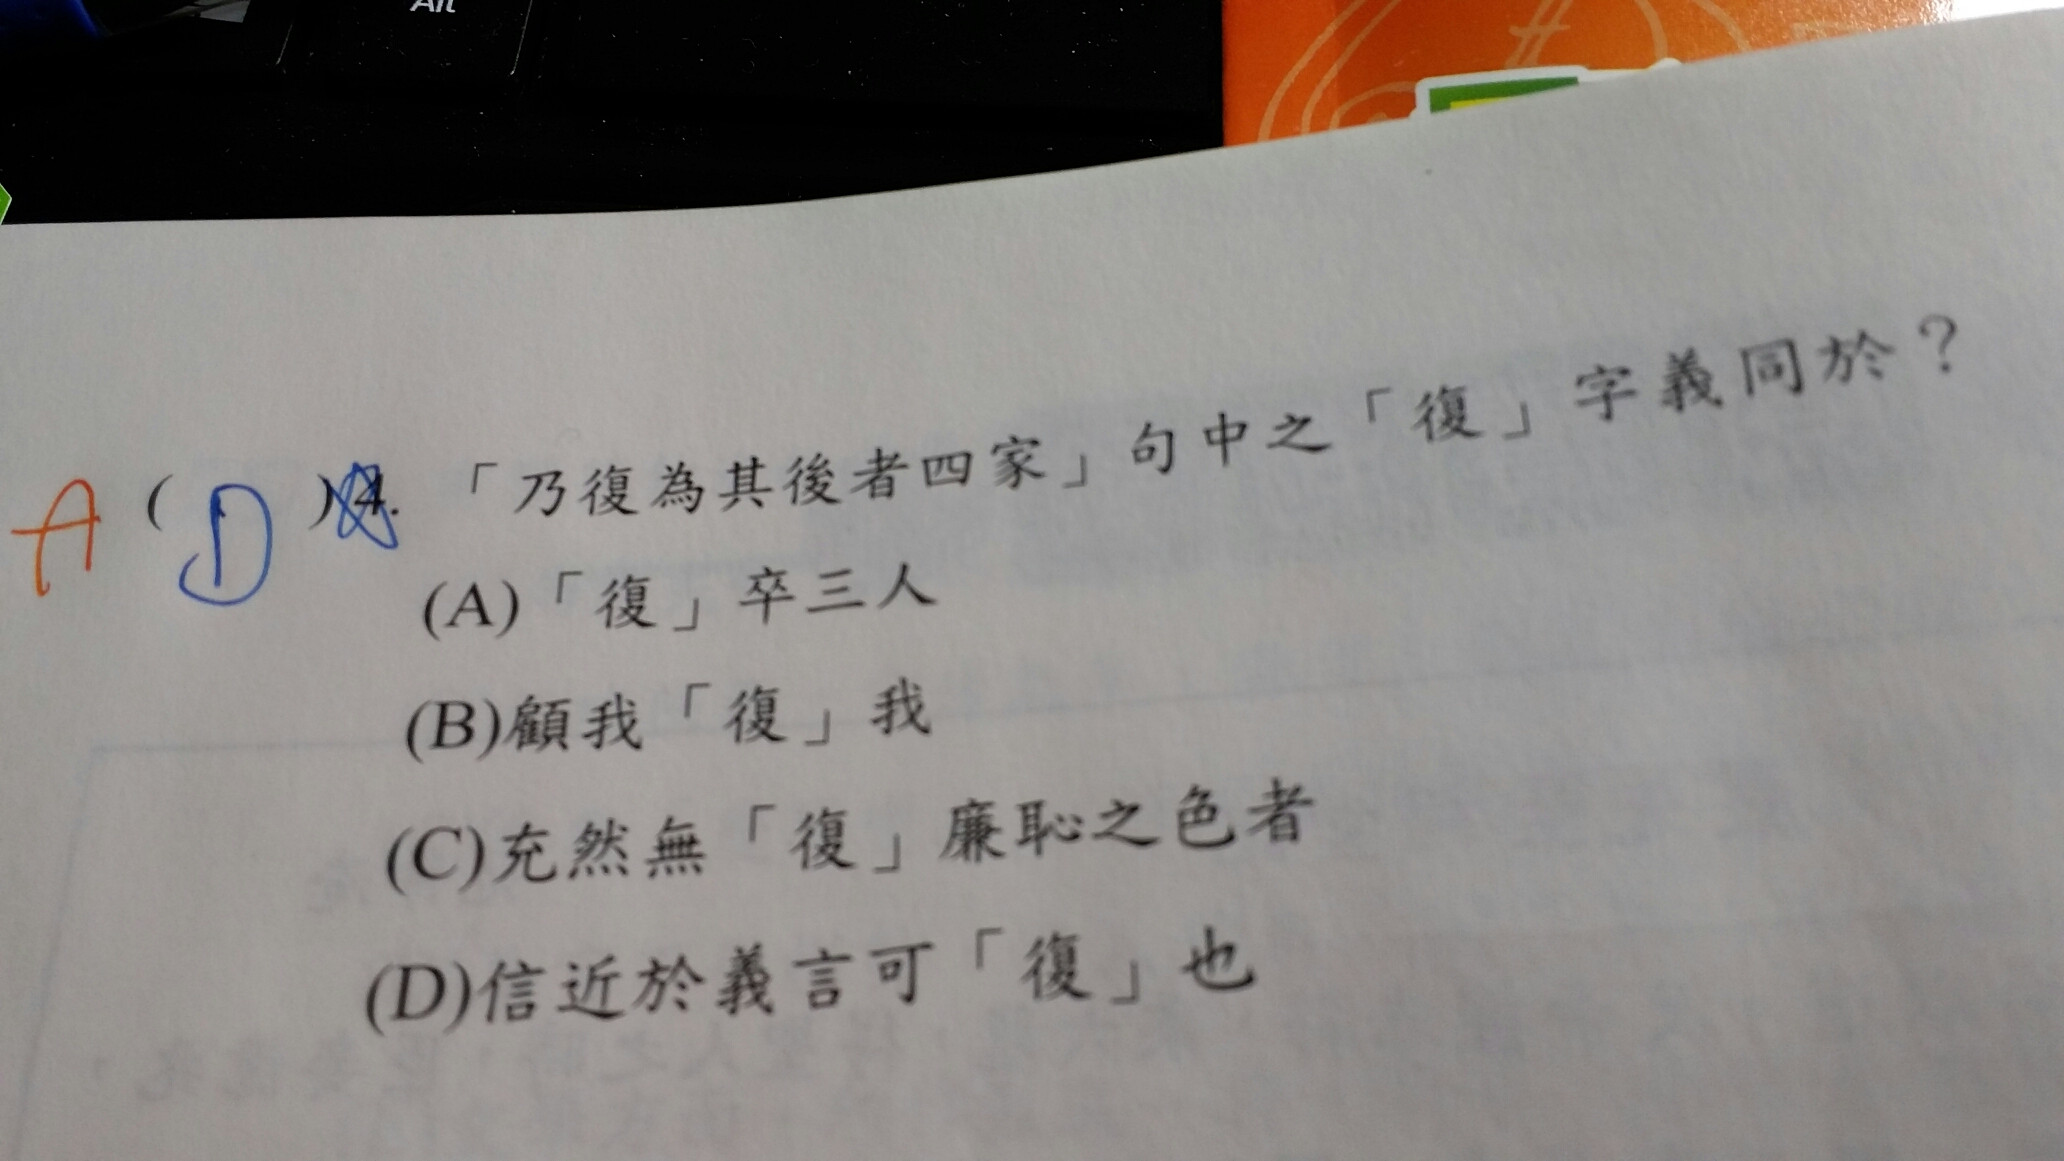 Alt
A ( D )4. 「乃復為其後者四家」句中之「復」字義同於？
(A)「復」卒三人
(B)顧我「復」我
(C)充然無「復」廉恥之色者
(D)信近於義言可「復」也